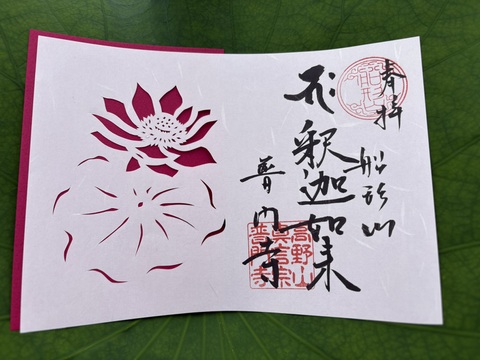 奉拝
船形山
釈迦如来
普門寺
高野山
真言宗
普門寺